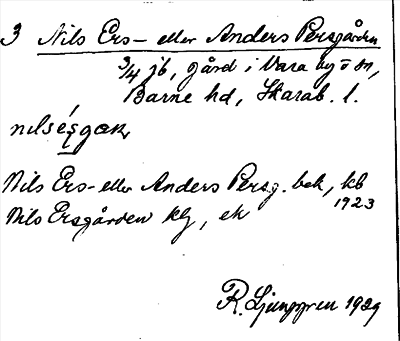 3 Nils Ers- eller Anders Persgården
3/4 jb, gård i Vara by o sn,
Barne hd, Skarab. l.
Nils Ers- eller Anders Persg. bek, kb
1923
Nils Ersgården kg, ek
R. Ljunggren 1929